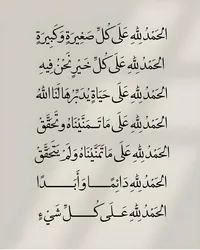 الحَمْدُ لِلّهِ عَلَى كُلِّ صَغِيرَةٍ وَكَبِيرَةٍ
الحَمْدُ لِلّهِ عَلَى كُلِّ خَيْرٍ نَحْنُ فِيهِ
الحَمْدُ لِلّهِ عَلَى حَيَاةٍ يُدَبِّرُهَا لَنَا اللهُ
الحَمْدُ لِلّهِ عَلَى مَا تَمَنَّيْنَاهُ وَتَحَقَّقَ
الحَمْدُ لِلّهِ عَلَى مَا تَمَنَّيْنَاهُ وَلَمْ يَتَحَقَّقْ
الحَمْدُ لِلّهِ دَائِمًا وَأَبَدًا
الحَمْدُ لِلّهِ عَلَى كُلِّ شَيْءٍ